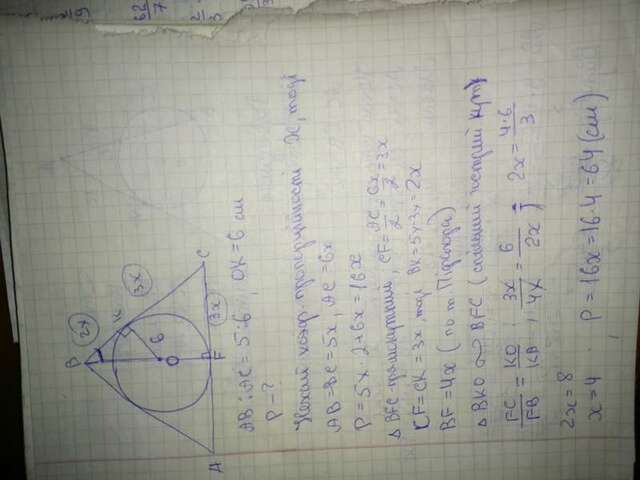 B
2x
K
3x
6
O
A
F
3x
C
AB:AC=5:6, OK=6 см
P-?
Нехай коеф. пропорційності x, тоді
AB=BC=5x, AC=6x
P=5x·2+6x=16x
Δ BFC-прямокутний, CF=AC/2=6x/2=3x
CF=CK=3x тоді BK=5x-3x=2x
BF=4x (по т. Піфагора)
Δ BKO ~ Δ BFC (спільний гострий кут)
FC/FB=KO/KB, 3x/4x=6/2x, 2x=4·6/3
2x=8
x=4. P=16x=16·4=64(см)